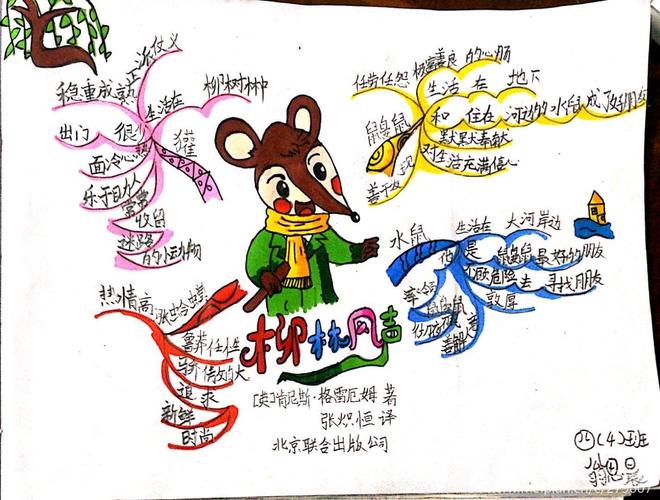 正派仗义
稳重成熟
生活在
柳树林中
出门
很
獾
面冷心热
乐于助人
常常
收留
迷路
的小动物
任劳任怨
善良的心肠
生活在地下
鼹鼠
和住在河边的水鼠成了好朋友
默默奉献
对生活充满信心
善于发现
水鼠
生活在大河岸边
他是鼹鼠最好的朋友
危险去寻找朋友
敦厚
热情高
蛤蟆
鲁莽任性
骄傲自大
追求
新鲜
时尚
柳林风声
[英]肯尼斯·格雷厄姆 著
张炽恒 译
北京联合出版公司
(4)班